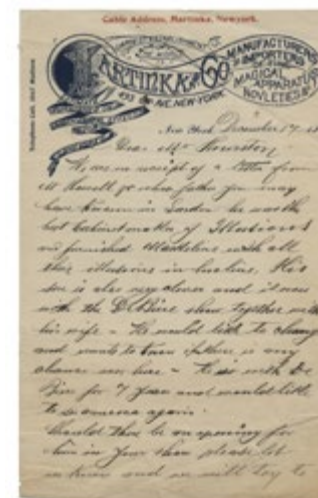 Cable Address, Martinka, Newyork.
MARTINKA AND CO.
493 6th AVE. NEW-YORK
MANUFACTURERS
IMPORTERS
MAGICAL
APPARATUS
NOVELTIES &
New York December 17
Dear Mr Thurston,
We are in receipt of a letter from
W whose father you may
have known in London he was the
best Cabinetmaker of Illusions
and furnished Maskelyne with all
their illusions in his time. His
son is also very clever and is now
with the De Biere show together with
his wife - He would like to change
and wants to know if there is any
chance over here - He is with De
Biere for 7 Years and would like
to see America again.
Should there be an opening for
him in Your Show please let
us know and we will try to